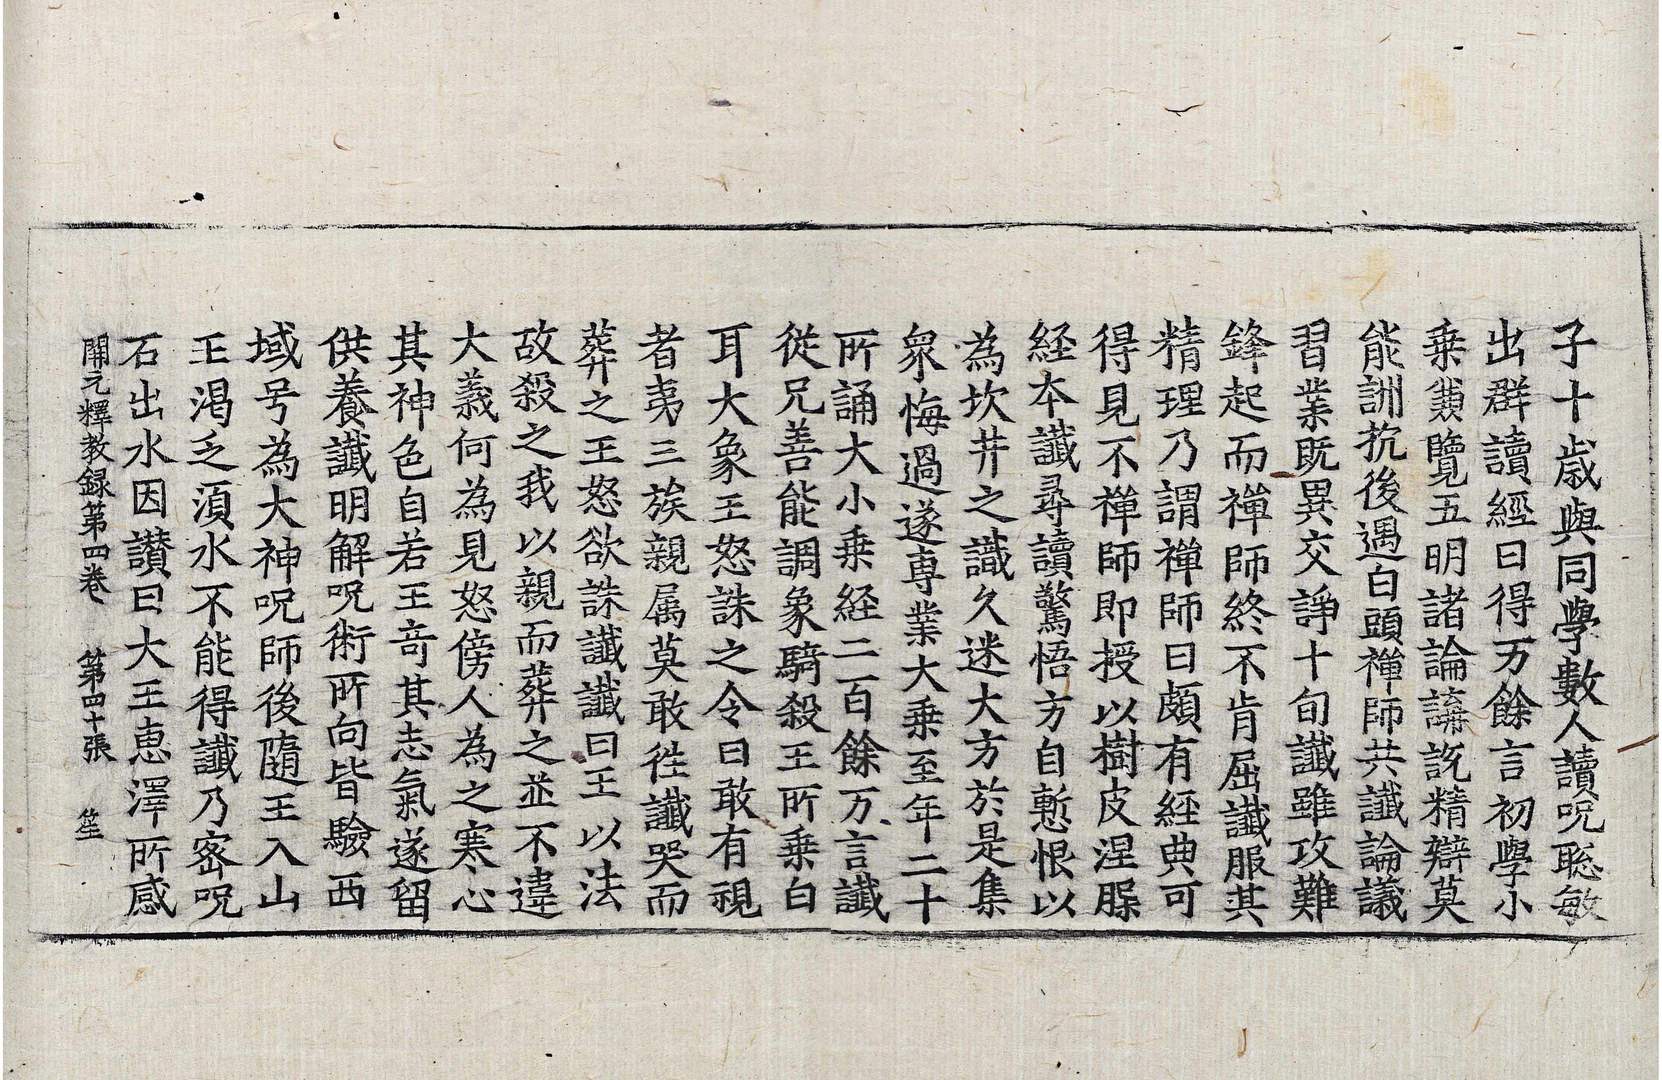 子十歲與同學數人讀呪聡敏
出群讀經日得万餘言初學小
乗兼覽五明諸論講說精辯莫
能訓抗後遇白頭禪師共讖論議
習業既異交諍十旬讖雖攻難
鋒起而禪師終不肯屈讖服其
精理乃謂禪師曰頗有經典可
得見不禪師即授以樹皮涅槃
経本讖尋讀驚悟方自慙恨以
為坎井之識久迷大方於是集
衆悔過遂専業大乗至年二十
所誦大小乗経二百餘万言讖
從兄善能調象騎殺王所乗白
耳大象王怒誅之令曰敢有視
者夷三族親属莫敢徃讖哭而
葬之王怒欲誅讖讖曰王以法
故殺之我以親而葬之並不違
大義何為見怒傍人為之寒心
其神色自若王奇其志氣遂留
供養讖明解呪術所向皆驗西
域号為大神呪師後隨王入山
王渇乏湏水不能得讖乃密呪
石出水因讃曰大王恵澤所感
開元釋教録第四卷 第四十張 笙